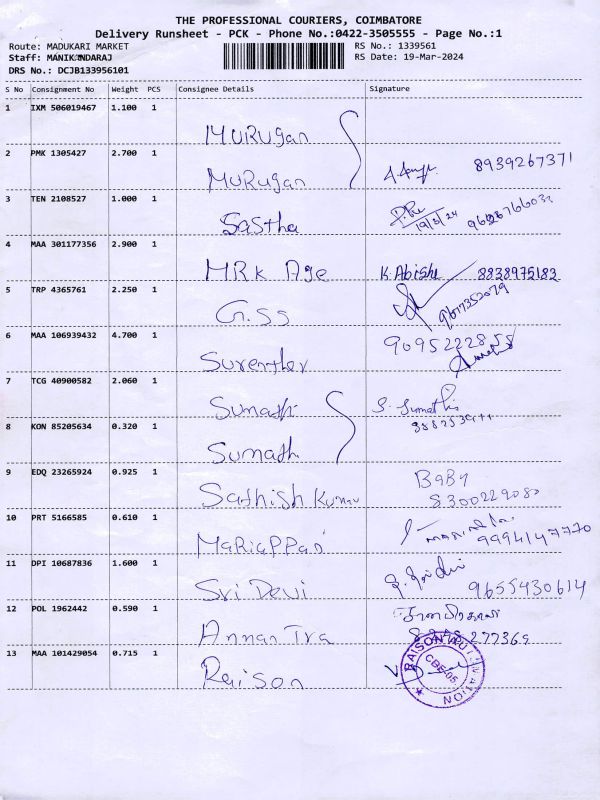 THE PROFESSIONAL COURIERS, COIMBATORE
Delivery Runsheet - PCK - Phone No.:0422-3505555 - Page No.:1
Route: MADUKARI MARKET RS No.: 1339561
Staff: MANIKANDARAJ RS Date: 19-Mar-2024
DRS No.: DCJB133956101
S No Consignment No Weight PCS Consignee Details Signature
1 IXM 506019467 1.100 1 MURUgan
2 PMK 1305427 2.700 1 MURUgan 8939267371
3 TEN 2108527 1.000 1 Sastha 19/3/24
4 MAA 301177356 2.900 1 MRK Age K. Abishe 8838975183
5 TRP 4365761 2.250 1 G.SS 9677352079
6 MAA 106939432 4.700 1 Surenther 9095222858
7 TCG 40900582 2.060 1 Sumathi S. Sumathi
8 KON 85205634 0.320 1 Sumath
9 EDQ 23265924 0.925 1 Sathish Kumar BaBy
8300229080
10 PRT 5166585 0.610 1 MaRiaPPan 9994147770
11 DPI 10687836 1.600 1 Sri Devi 9655430614
12 POL 1962442 0.590 1 Annan Tra 277369
13 MAA 101429054 0.715 1 Raison RAISON CBE-05